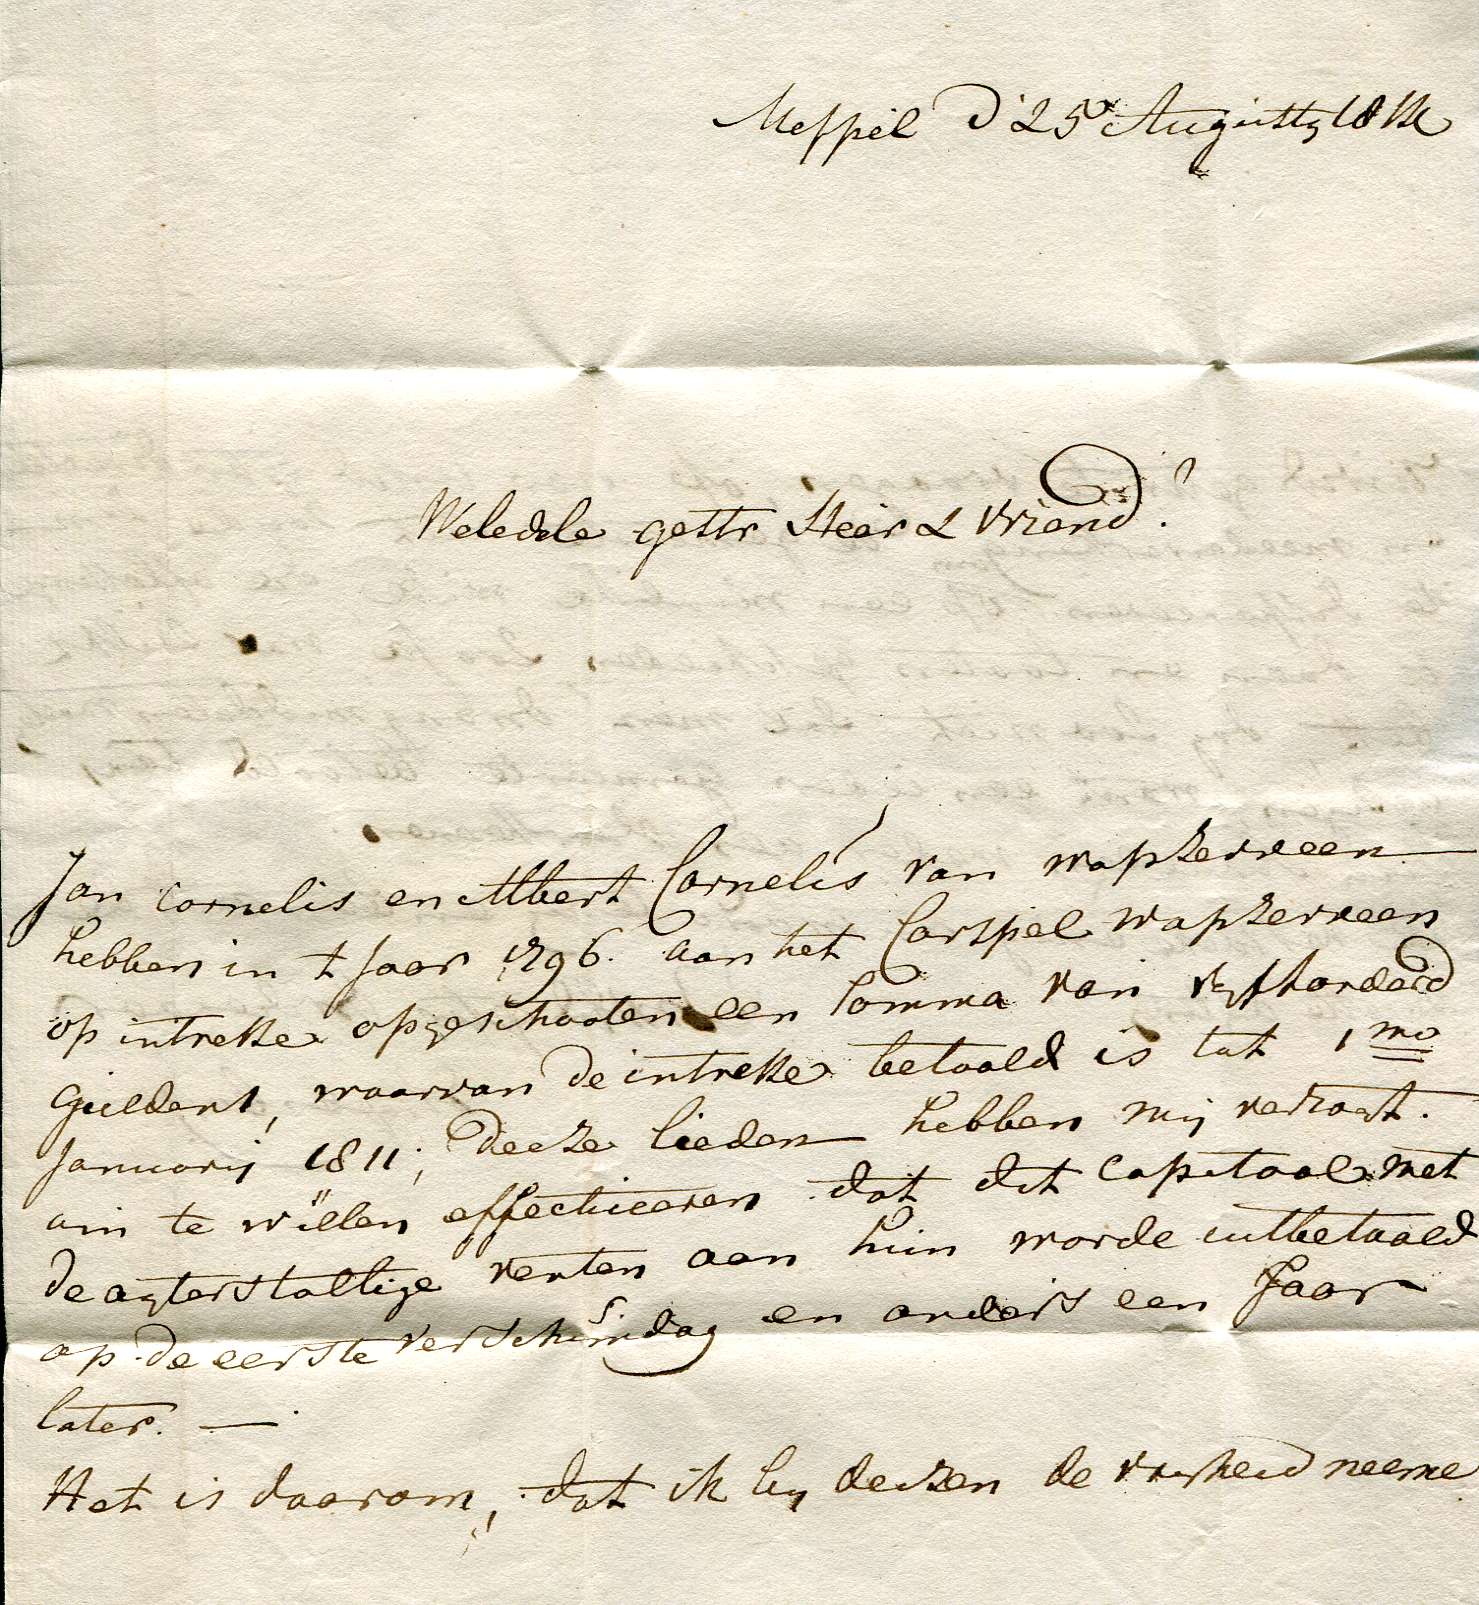 Meppel d' 25 Augustus 18
Weledele gestr Heer & vriend!
Jan Cornelis en Albert Cornelis van Wapserveen
hebben in t Jaar 1796. aan het Carspel Wapserveen
op intresse opgeschooten een Somma van vyfhonderd
guldens, waarvan de intresse betaald is tot 1mo
Januarij 1811; deeze lieden hebben mij verzogt.
om te willen effectueeren dat dit Capitaal met
de agterstallige renten aan hun worde uitbetaald
op de eerste verschijndag en anders een Jaar
later. —
Het is daarom, dat ik by deezen de vryheid neeme